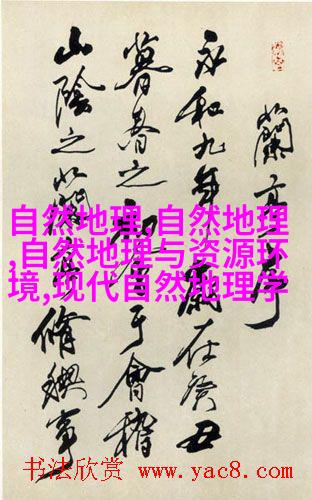 蘭亭序
永和九年歲在癸丑
暮春之初會于會稽
山陰之蘭亭脩禊事
自然地理,自然地理
,自然地理与资源环
境,现代自然地理学
书法欣赏 www.yac8.com